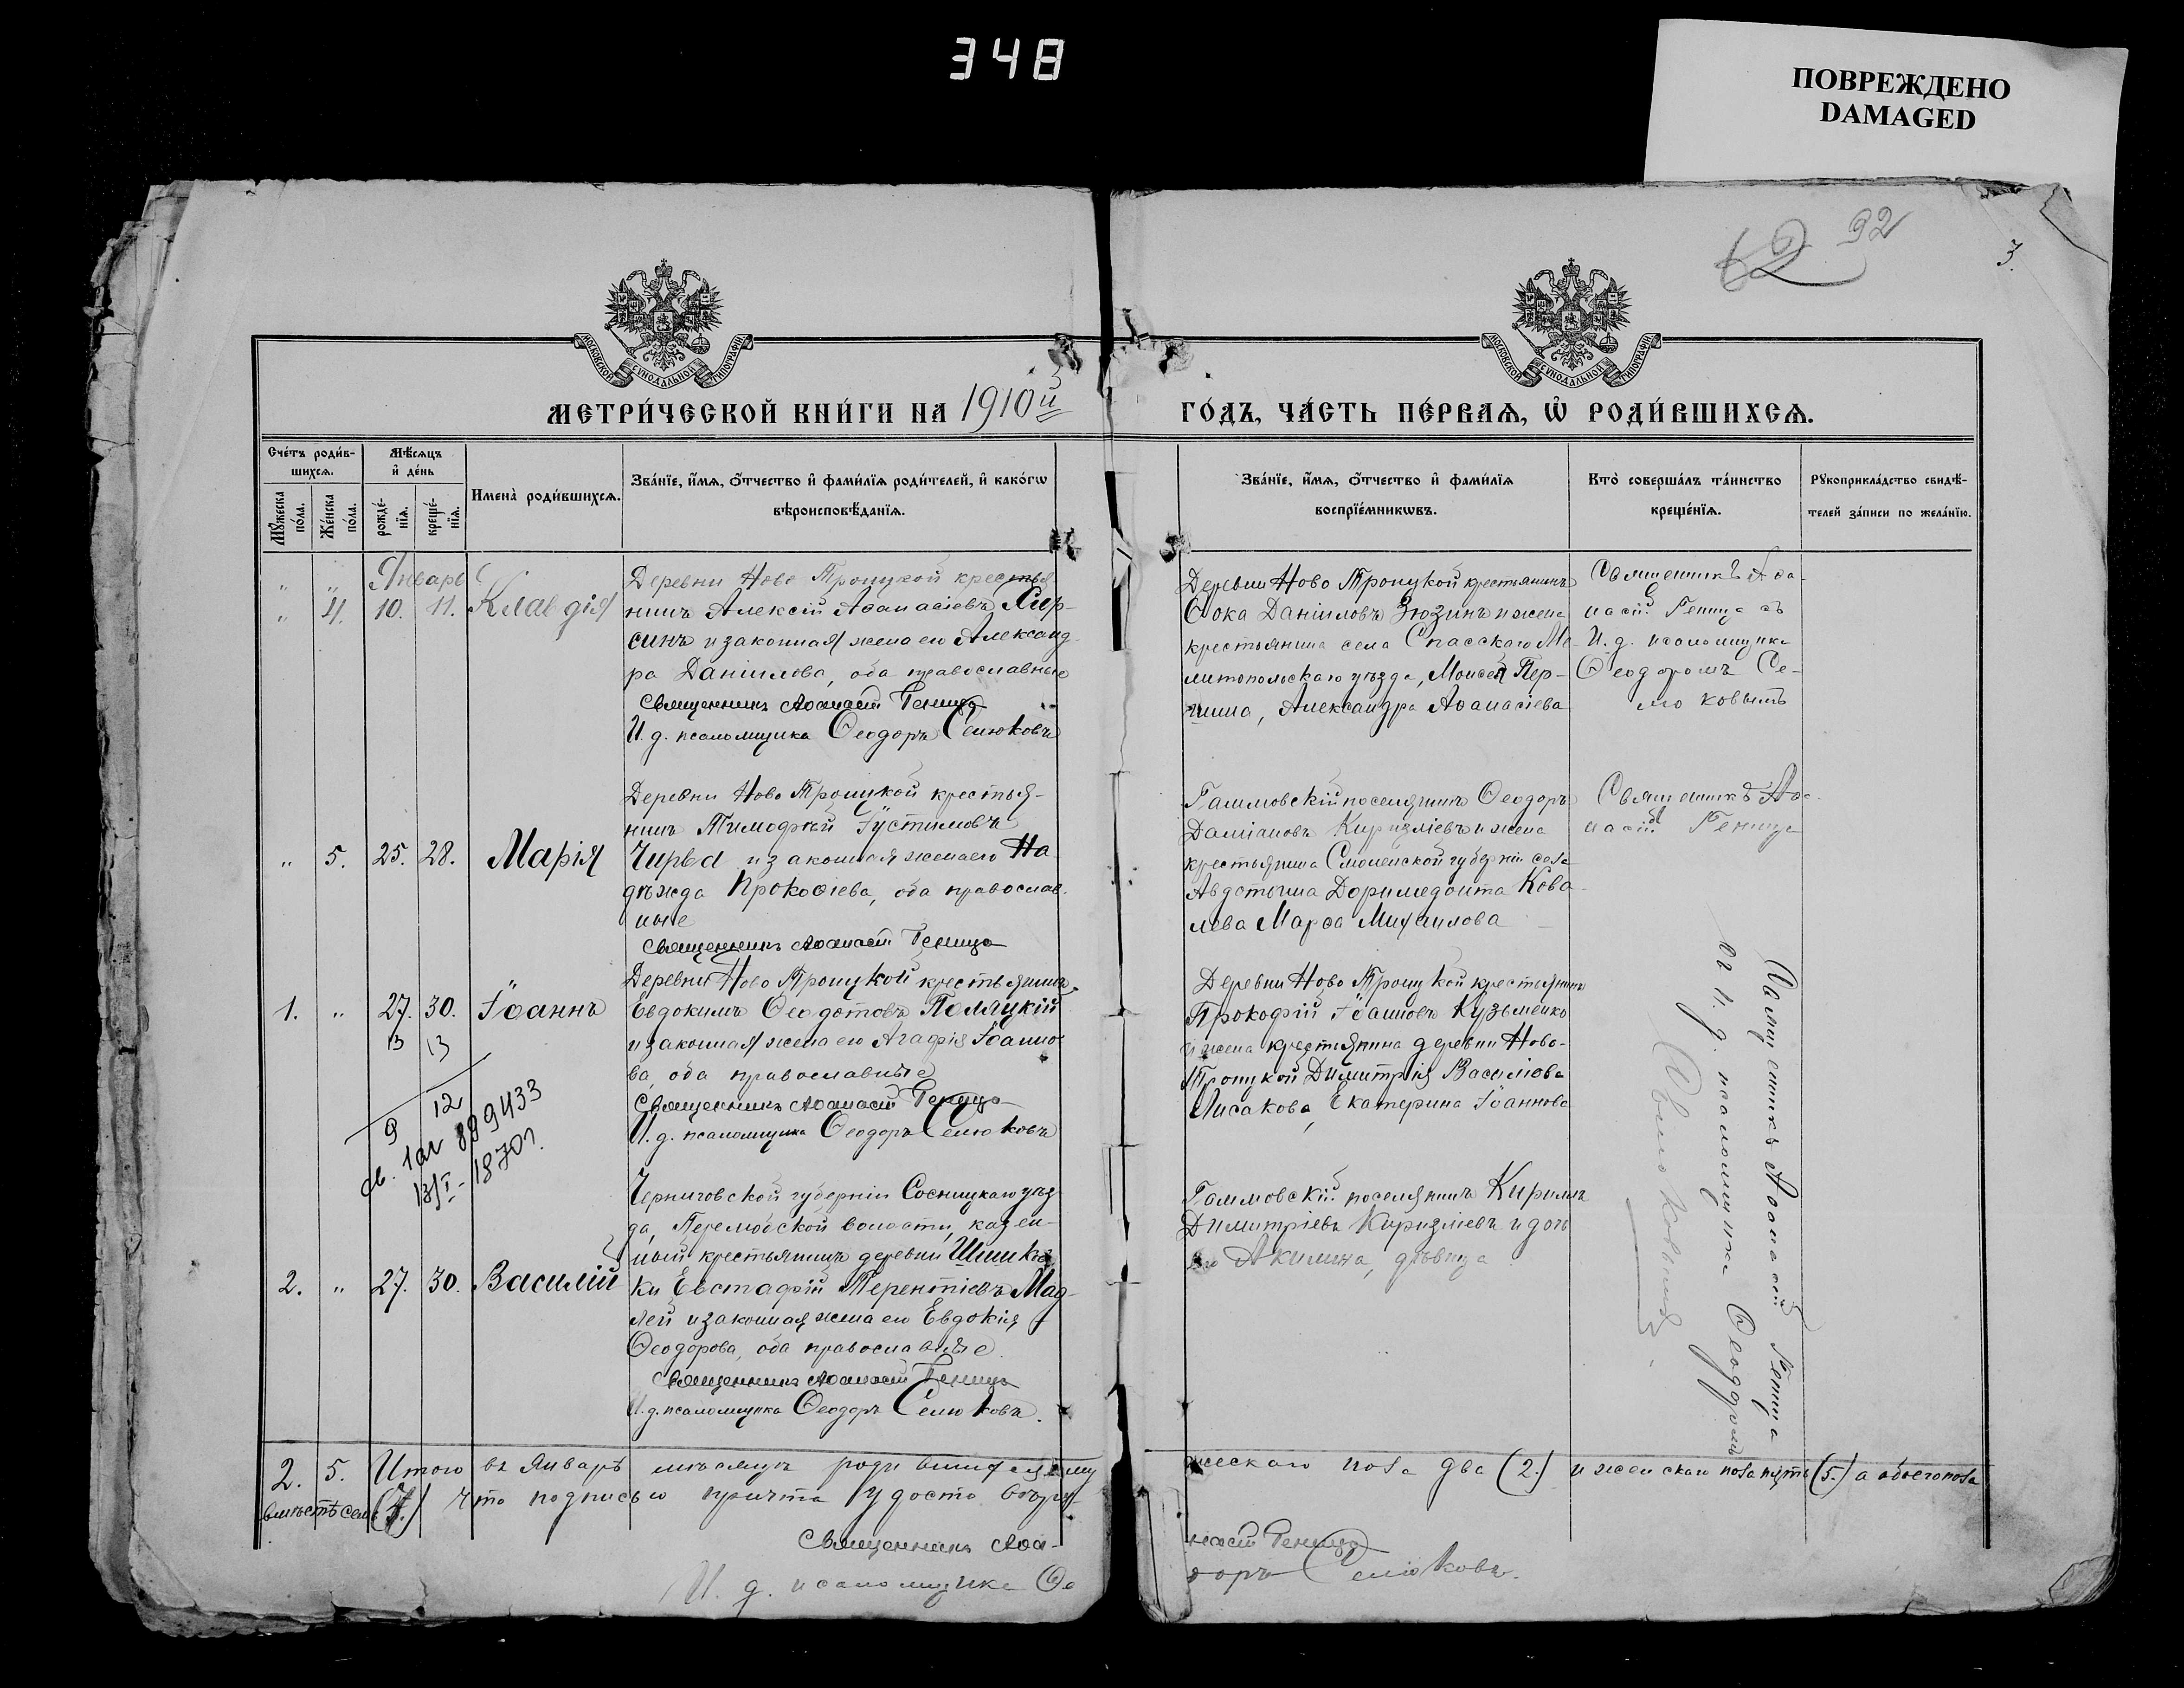 348
ПОВРЕЖДЕНО
DAMAGED
92
3.
МОСКОВСКОЙ СѴНОДАЛЬНОЙ ТИПОГРАФІИ
МОСКОВСКОЙ СѴНОДАЛЬНОЙ ТИПОГРАФІИ
МЕТРИ́ЧЕСКОЙ КНИ́ГИ НА 1910й ГО́ДЪ, ЧА́СТЬ ПЕ́РВАѦ, Ѡ҆ РОДИ́ВШИХСѦ.
Сче́тъ роди́в-
шихсѧ.
Мꙋ́жеска по́ла.
Же́нска по́ла.
Мѣ́сѧцъ
и҆ де́нь
рожде́-
нїѧ.
креще́-
нїѧ.
Имена̀ роди́вшихсѧ.
Зва́нїе, и҆́мѧ, ѻ҆́тчество и҆ фами́лїѧ роди́телей, и҆ како́гѡ
вѣроисповѣ́данїѧ.
Зва́нїе, и҆́мѧ, ѻ҆́тчество и҆ фами́лїѧ
воспрїе́мникѡвъ.
Кто̀ соверша́лъ та́инство
креще́нїѧ.
Рꙋкоприкла́дство свидѣ́-
телей за́писи по жела́нїю.
Январь
" 4. 10. 11. Клавдія
Деревни Ново Троицкой крестья-
нинъ Алексій Аѳанасіевъ Хир-
синъ и законная жена его Александ-
ра Даніилова, оба православные
Священникъ Аѳанасій Геница
И. д. псаломщика Ѳеодоръ Семюковъ
Деревни Ново Троицкой крестьянинъ
Ѳока Даніиловъ Зюзинъ и жена
крестьянина села Спасскаго Ме-
литопольскаго уѣзда, Моисея Пер-
шина, Александра Аѳанасіева
Священникъ Аѳа-
насій Геница съ
И. д. псаломщика
Ѳеодоромъ Се-
мюковымъ
" 5. 25. 28. Марія
Деревни Ново Троицкой крестья-
нинъ Тимофей Іустиновъ
Чирва и законная жена его На-
дѣжда Прокофіева, оба православ-
ные
Священникъ Аѳанасій Геница
Гаммовскій поселянинъ Ѳеодоръ
Даміановъ Киризліевъ и жена
крестьянина Смоленской губерніи села
Авдотина Доримедонта Кова-
лева Марѳа Михаилова
Священникъ Аѳа-
насій Геница
1. " 27. 30. Іоаннъ
13 13
Деревни Ново Троицкой крестьянинъ
Евдокимъ Ѳеодотовъ Поляцкій
и законная жена его Агафія Іоанно-
ва, оба православные
Священникъ Аѳанасій Геница
И. д. псаломщика Ѳеодоръ Семюковъ
Деревни Ново Троицкой крестьянинъ
Прокофій Іоанновъ Кузьменко
и жена крестьянина деревни Ново-
Троицкой Димитрія Василіова
Лисакова, Екатерина Іоаннова
9 12
св. 1аг 889433
13/I - 1870г.
2. " 27. 30. Василій
Черниговской губерніи Сосницкаго уѣз-
да, Перелюбской волости, казен-
ный крестьянинъ деревни Шишков-
ки Евстафій Терентіевъ Мад-
лей и законная жена его Евдокія
Ѳеодорова, оба православные
Священникъ Аѳанасій Геница
И. д. псаломщика Ѳеодоръ Семюковъ.
Гаммовскій поселянинъ Кириллъ
Димитріевъ Киризліевъ и дочь
его Акилина, дѣвица
Священникъ Аѳанасій Геница
съ И. д. псаломщика Ѳеодоромъ
Семюковымъ
2. 5. Итого въ Январѣ мѣсяцѣ родившихся мужескаго пола два (2.) и женскаго пола пять (5.) а обоего пола
вмѣстѣ семь (7.) что подписью причта удостовѣру-
Священникъ Аѳанасій Геница
И. д. псаломщика Ѳеодоръ Семюковъ.